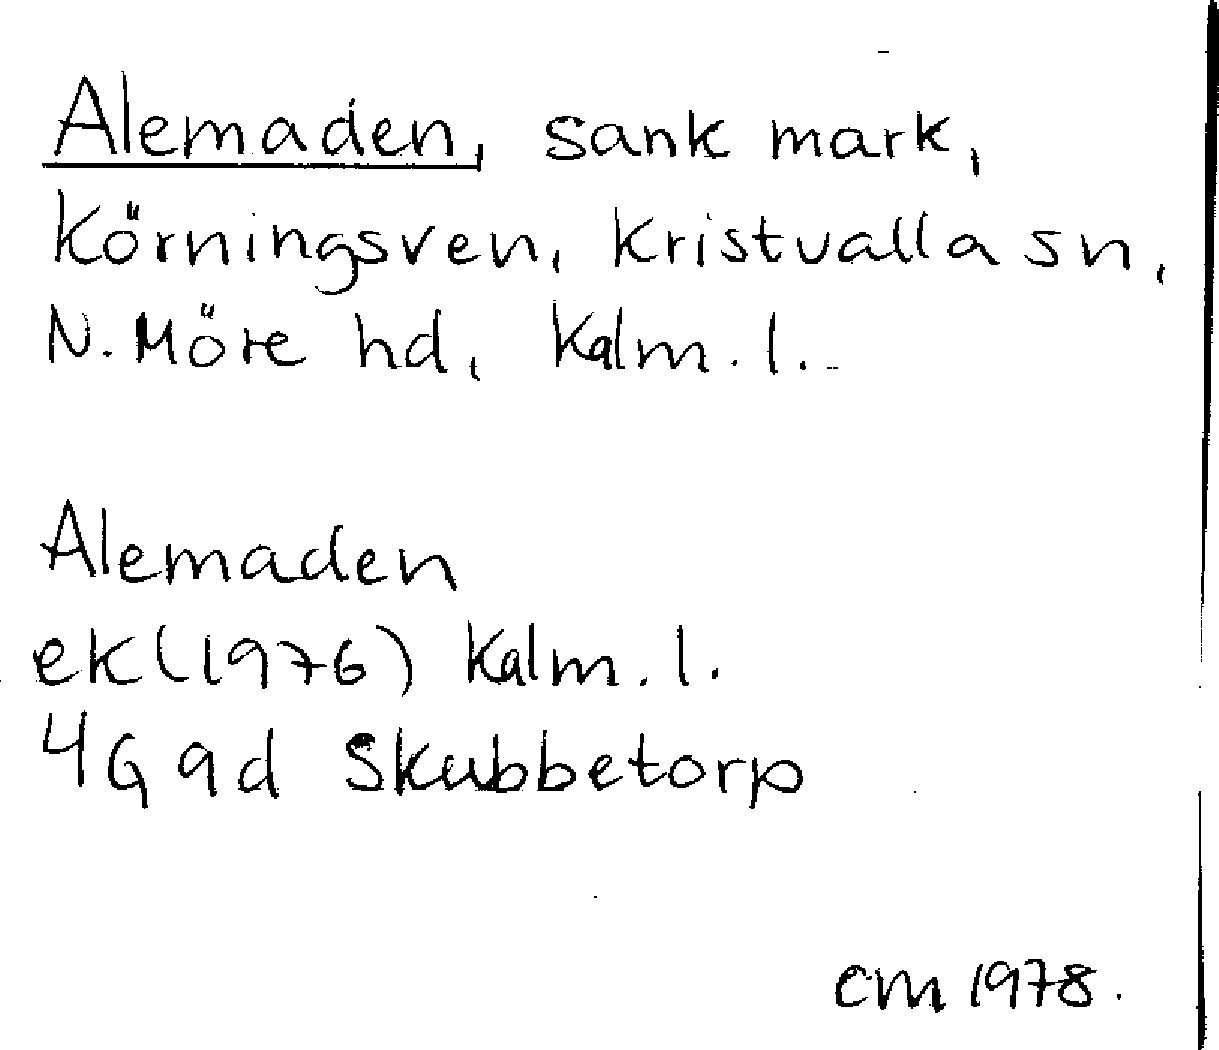 Alemaden, sank mark,
Körningsven, Kristvalla sn,
N. Möre hd, Kalm. l.
Alemaden
ek (1976) Kalm. l.
4G 9d Skubbetorp
cm 1978.